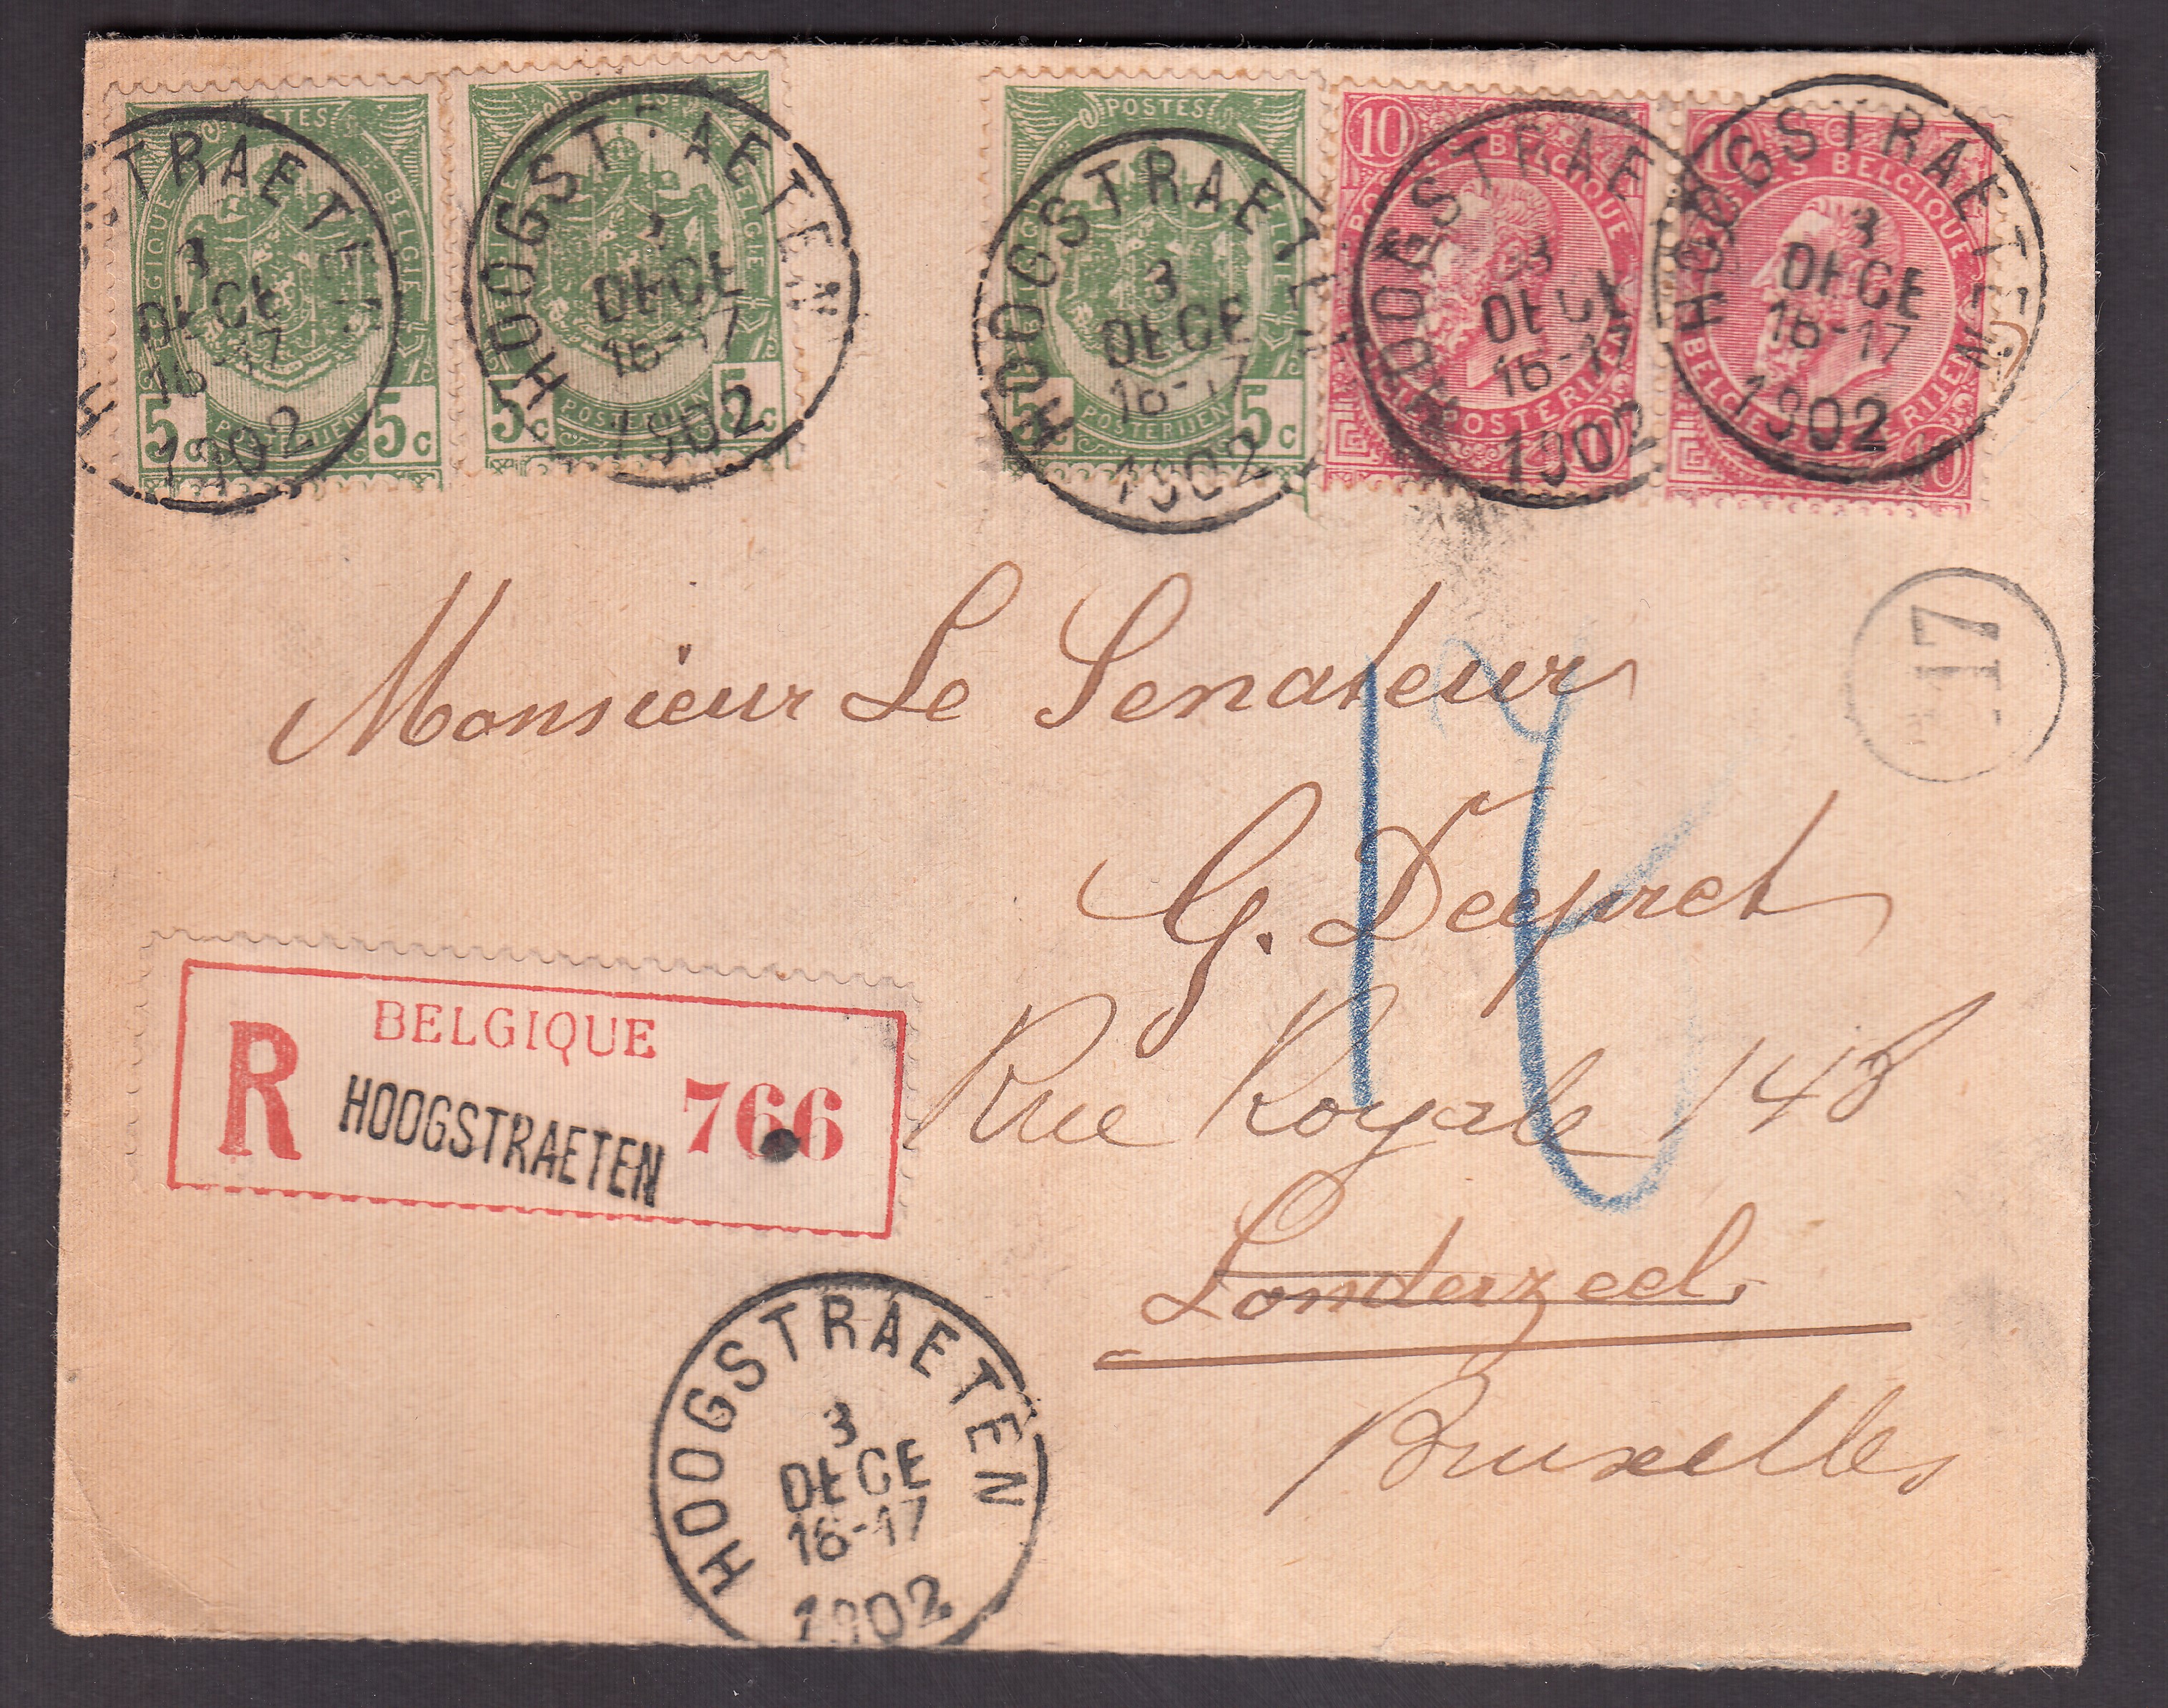 POSTES
BELGIQUE BELGIE
5c POSTERIJEN 5c
POSTES
BELGIE
5c POSTERIJEN 5c
POSTES
5c POSTERIJEN 5c
10
POSTES BELGIQUE
POSTERIJEN
10
10
POSTES BELGIQUE
BELGIE POSTERIJEN
10
HOOGSTRAETEN
3
DECE
16-17
1902
HOOGSTRAETEN
3
DECE
16-17
1902
HOOGSTRAETEN
3
DECE
16-17
1902
HOOGSTRAETEN
3
DECE
16-17
1902
HOOGSTRAETEN
3
DECE
16-17
1902
17
Monsieur Le Senateur
G. Deepret
Rue Royale 148
Londerzeel
Bruxelles
R BELGIQUE
HOOGSTRAETEN 766
HOOGSTRAETEN
3
DECE
16-17
1902